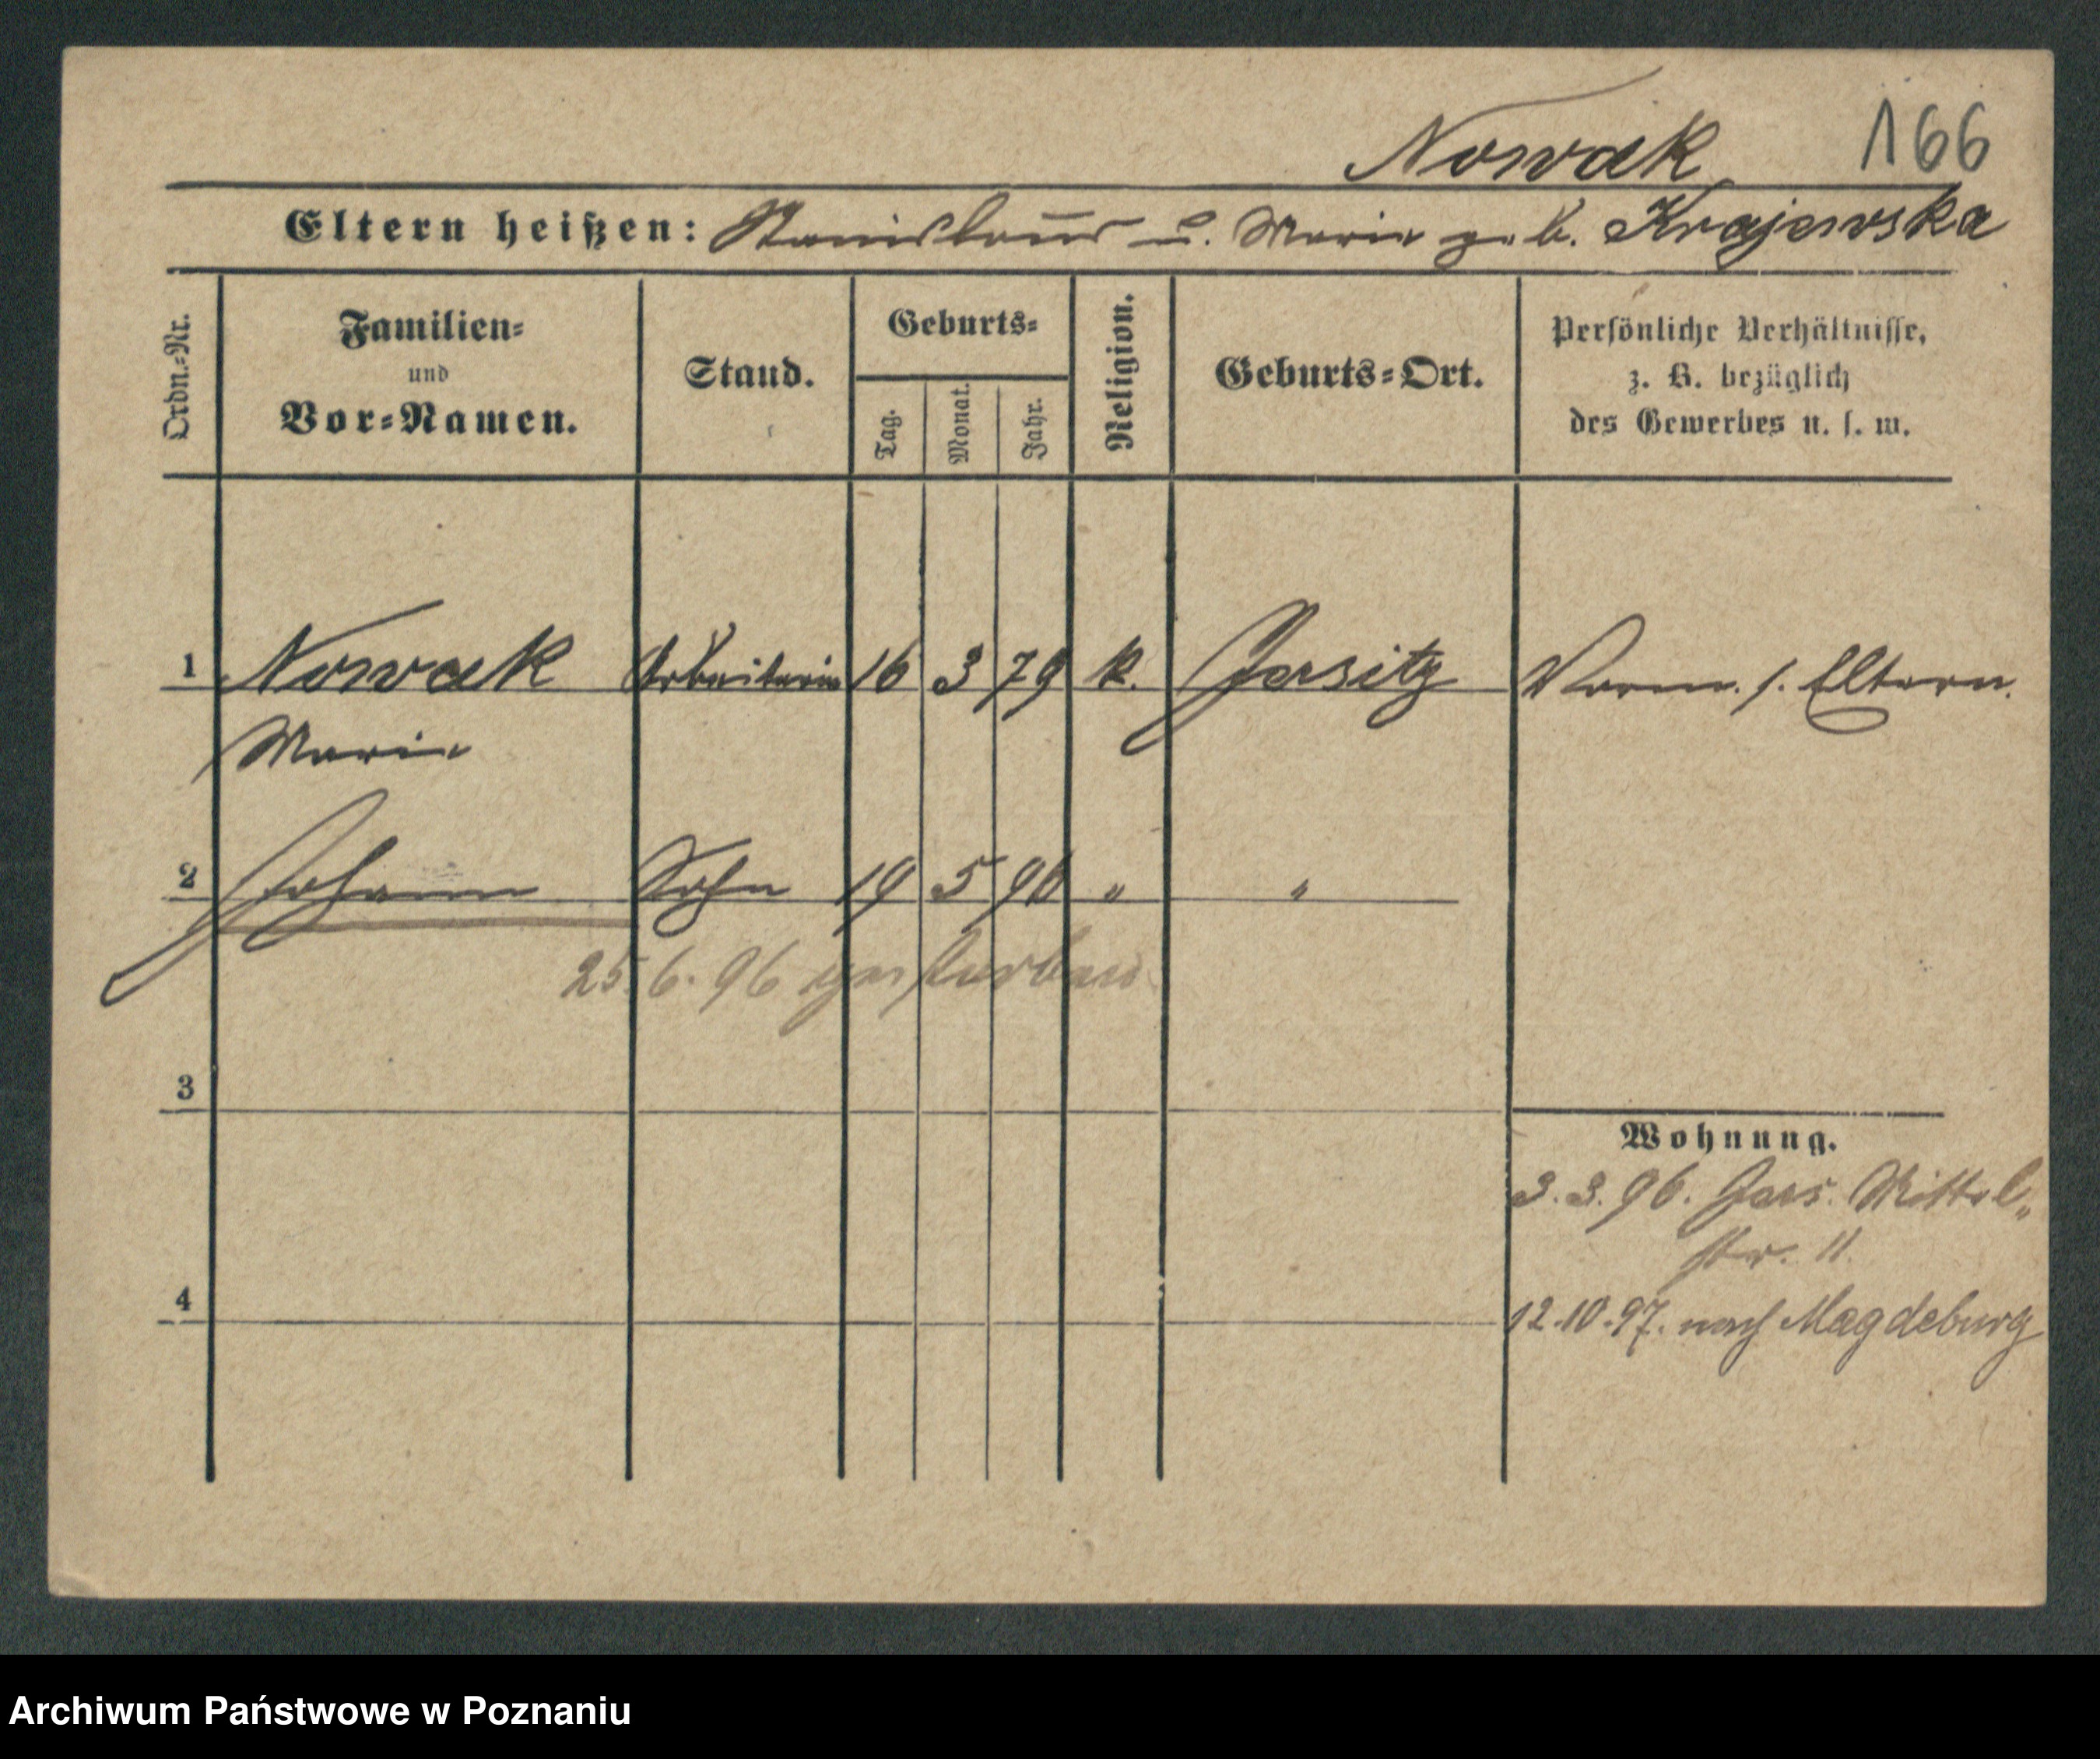 Nowak 166
Eltern heißen: Stanislaus u. Marie geb. Krajewska
Ordn.=Nr. Familien= und Vor=Namen. Stand. Geburts= Tag. Monat. Jahr. Religion. Geburts=Ort. Persönliche Verhältnisse, z. B. bezüglich des Gewerbes u. s. w.
1 Nowak Arbeiterin 16 3 79 k. Jersitz Vorm. s. Eltern.
Marie
2 Johann Sohn 19 5 96 " "
25.6.96 gestorben
3
Wohnung.
3.3.96. Jers. Mittel„
str. 11.
4
12.10.97. nach Magdeburg
Archiwum Państwowe w Poznaniu